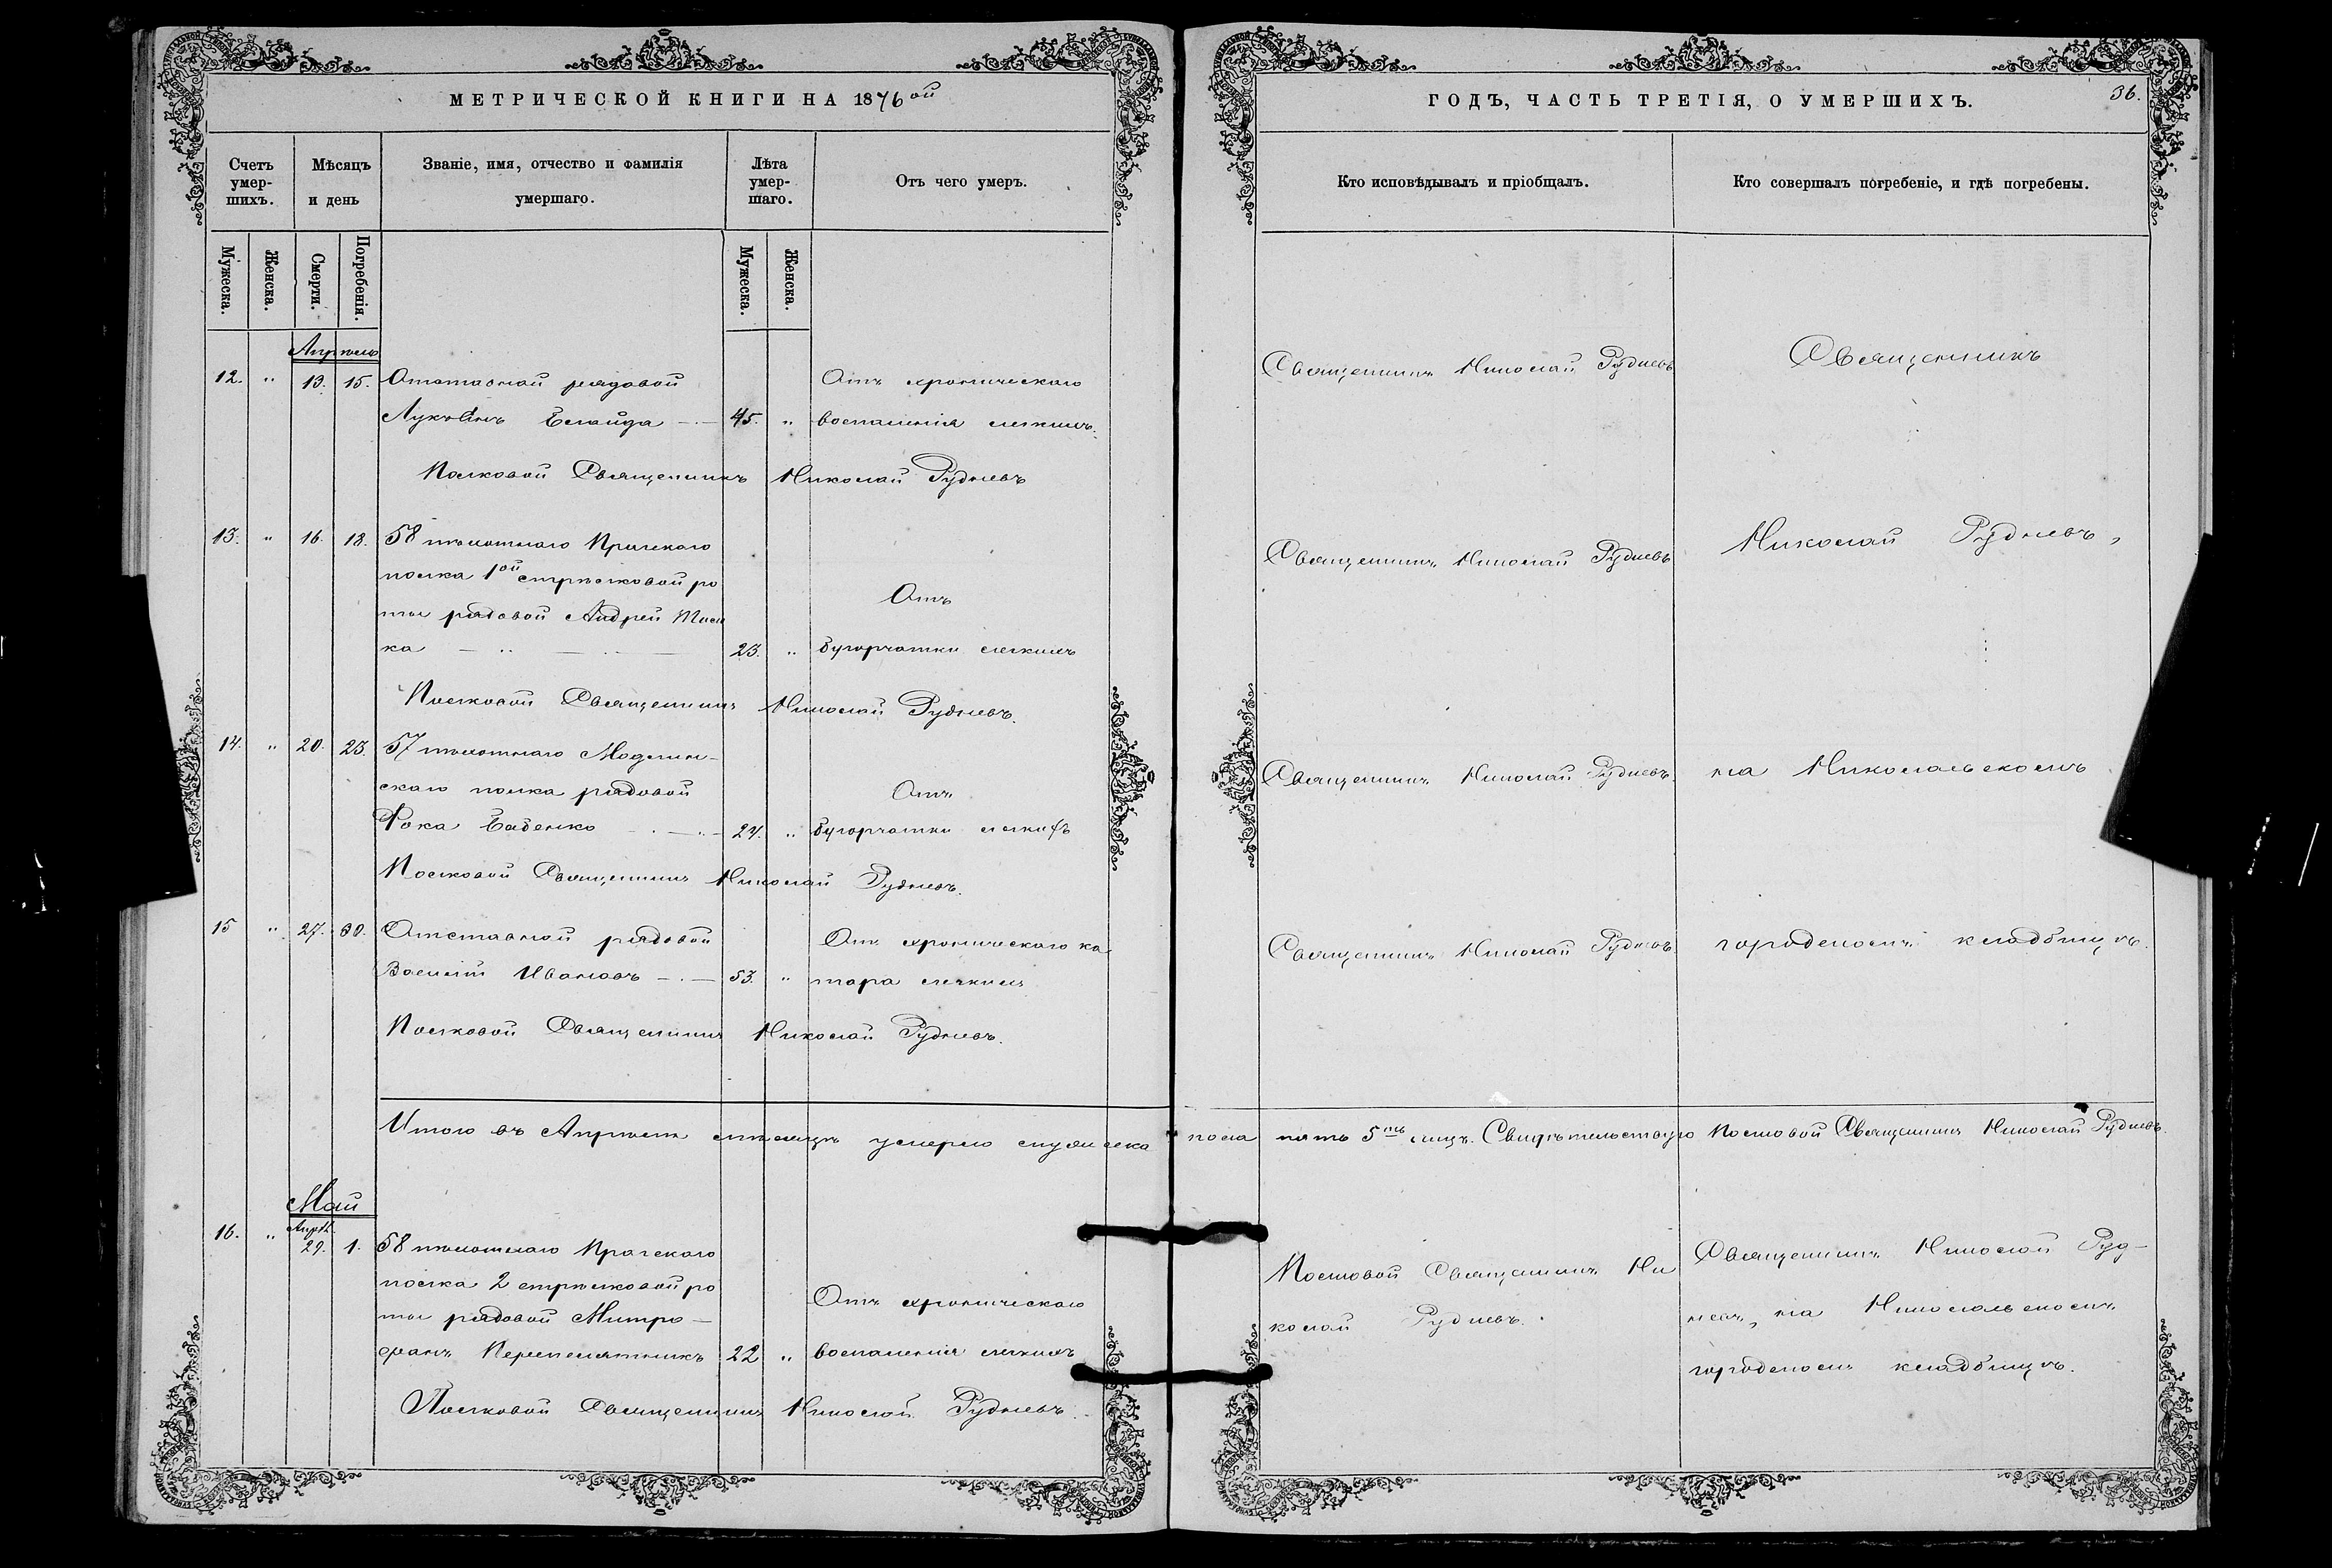 МЕТРИЧЕСКОЙ КНИГИ НА 1876ой
Счетъ умер-шихъ.
Мѣсяцъ и день
Званіе, имя, отчество и фамилія умершаго.
Лѣта умер-шаго.
Отъ чего умеръ.
Мужеска.
Женска.
Смерти.
Погребенія.
Мужеска.
Женска.
Апрѣль
12. " 13. 15. Отставной рядовой
45. "
Отъ хроническаго
воспаленія легкихъ.
Полковой Священникъ Николай Рудневъ
13. " 16. 18. 58 пѣхотнаго Прагскаго
полка 1ой стрѣлковой ро
ты рядовой Андрей
ка 23. "
Отъ
бугорчатки легкихъ
Полковой Священникъ Николай Рудневъ.
14. " 20. 23. 57 пѣхотнаго Модлин-
скаго полка рядовой
Фока Бабенко 24. "
Отъ
бугорчатки легкихъ
Полковой Священникъ Николай Рудневъ.
15 " 27. 30. Отставной рядовой
Василій Ивановъ 53. "
Отъ хроническаго ка
тара легкихъ
Полковой Священникъ Николай Рудневъ.
Итого въ Апрѣлѣ мѣсяцѣ умерло мужеска
Май
16. " Апрѣл. 29. 1. 58 пѣхотнаго Прагскаго
полка 2 стрѣлковой ро
ты рядовой Митро-
фанъ Перепелятникъ 22 "
Отъ хроническаго
воспаленія легкихъ
Полковой Священникъ Николай Рудневъ.
ГОДЪ, ЧАСТЬ ТРЕТІЯ, О УМЕРШИХЪ.
36.
Кто исповѣдывалъ и пріобщалъ.
Кто совершалъ погребеніе, и гдѣ погребены.
Священникъ Николай Рудневъ
Священникъ
Священникъ Николай Рудневъ
Николай Рудневъ,
Священникъ Николай Рудневъ.
на Никольскомъ
Священникъ Николай Рудневъ.
городскомъ кладбищѣ.
пола пять 5ть лицъ. Свидѣтельствую Полковой Священникъ Николай Рудневъ.
Полковой Священникъ Ни
колай Рудневъ.
Священникъ Николай Руд-
невъ, на Никольскомъ
городскомъ кладбищѣ.